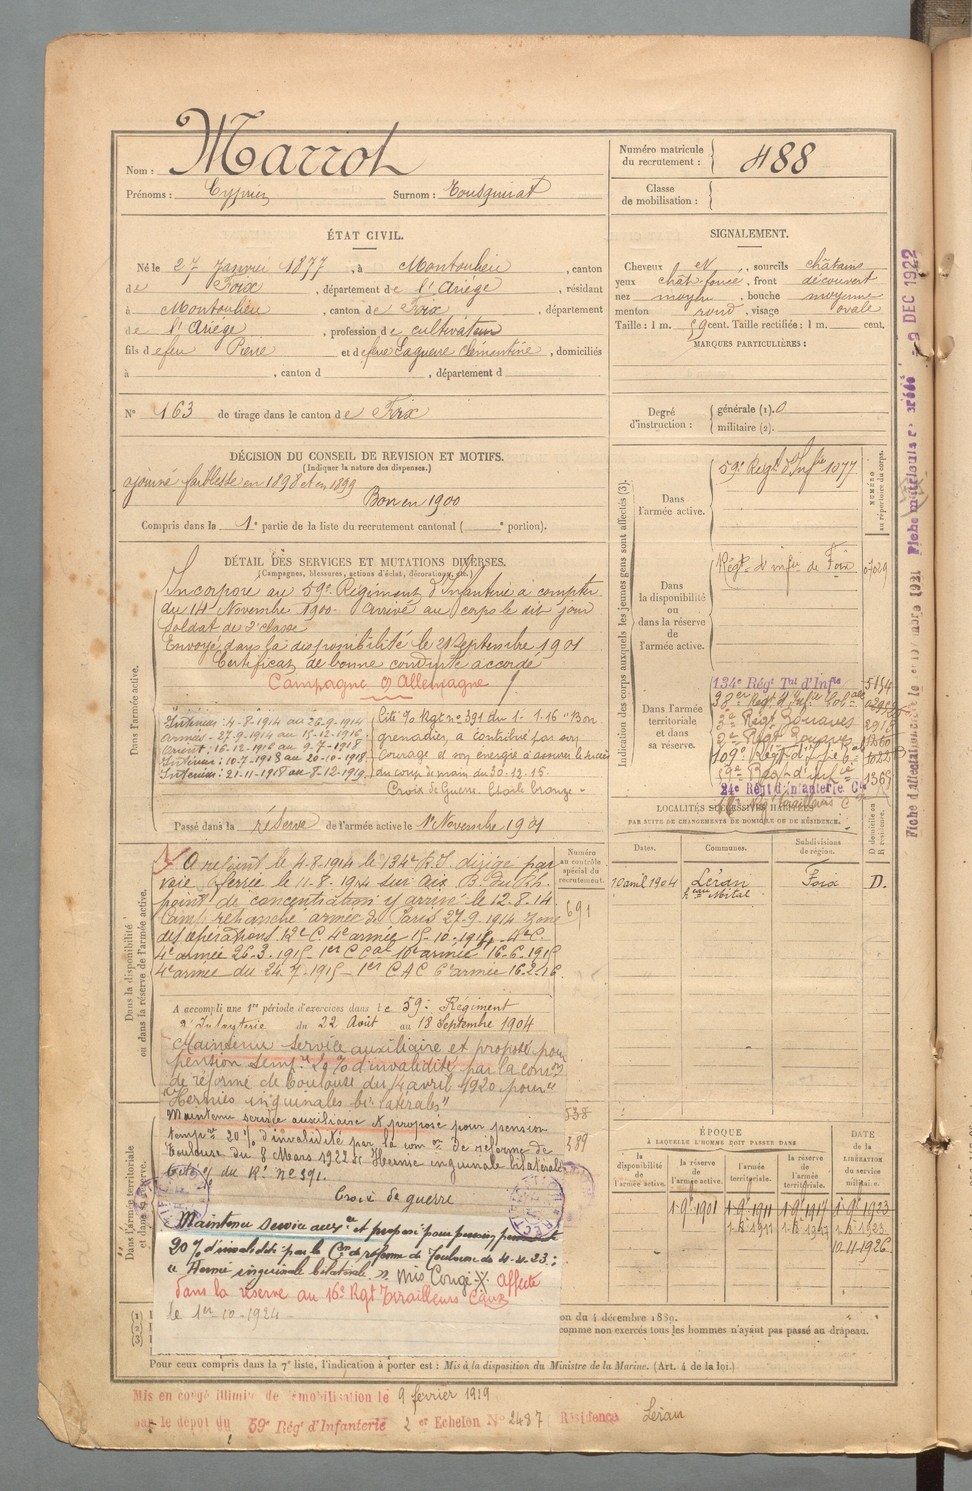 Nom : Marrot
Prénoms : Cyprien Surnom : Tousquirat
Numéro matricule du recrutement : 488
Classe de mobilisation :
ÉTAT CIVIL.
Né le 27 Janvier 1877, à Montoulieu, canton
de Foix, département de l'Ariège, résidant
à Montoulieu, canton de Foix, département
de l'Ariège, profession de cultivateur
fils de feu Pierre et de feue Laguerre Clémentine, domiciliés
à , canton d , département d
N° 163 de tirage dans le canton de Foix
SIGNALEMENT.
Cheveux N, sourcils châtains
yeux chât. foncé, front découvert
nez moyen, bouche moyenne
menton rond, visage ovale
Taille : 1 m. 59 cent. Taille rectifiée : 1 m. cent.
MARQUES PARTICULIÈRES :
Degré d'instruction : générale (1). 0
militaire (2).
DÉCISION DU CONSEIL DE REVISION ET MOTIFS.
(Indiquer la nature des dispenses.)
ajourné faiblesse en 1898 et en 1899
Bon en 1900
Compris dans la 1e partie de la liste du recrutement cantonal ( e portion).
DÉTAIL DES SERVICES ET MUTATIONS DIVERSES.
(Campagnes, blessures, actions d'éclat, décorations, etc.)
Dans l'armée active.
Incorporé au 59e Régiment d'Infanterie à compter
du 14 Novembre 1900. Arrivé au corps le dit jour
Soldat de 2e classe
Envoyé dans la disponibilité le 21 Septembre 1901
Certificat de bonne conduite accordé
Campagne c/ Allemagne
Intérieur : 4-8-1914 au 26-9-1914
Armées - 27-9-1914 au 15-12-1916
Orient : 16-12-1916 au 9-7-1918
Intérieur : 10-7-1918 au 20-10-1918
Intérieur : 21-11-1918 au 8-12-1919
Cité O/ Rgt n° 391 du 1-1-16 "Bon
grenadier, a contribué par son
courage et son énergie à assurer le succès
du coup de main du 30-12-15.
Croix de Guerre. Etoile bronze -
Passé dans la réserve de l'armée active le 1er Novembre 1901
Dans la disponibilité ou dans la réserve de l'armée active.
A rejoint le 4-8-1914 le 134e R.I. dirigé par
voie ferrée le 11-8-1914 sur Aix B. du Rh.
point de concentration y arrive le 12-8-14
Camp retranché armée de Paris 27-9-1914 Zone
des opérations 12e C. 4e armée
4e armée 26-3-1915 - 1er C.C. 10e armée 16-6-1915
4e armée du 24-7-1915 - 1er C A C 6e armée 16-2-16
Numéro au contrôle spécial du recrutement.
691
A accompli une 1re période d'exercices dans le 59e Régiment
d'Infanterie du 22 Août au 18 Septembre 1904
Maintenu service auxiliaire et proposé pour
pension temp.re 20% d'invalidité par la com.on
de réforme de Toulouse du 14 avril 1920 pour
"Hernies inguinales bi-latérales"
Dans l'armée territoriale et dans sa réserve.
Maintenu service auxiliaire et proposé pour pension
temp.re 20% d'invalidité par la com.on de réforme de
Toulouse du 8 Mars 1922 : Hernie inguinale bilatérale
Cité O/ du R.t n° 391.
Croix de guerre
Maintenu service aux.re et proposé pour pension permanente
20% d'invalidité par la C.on de réforme de Toulouse du 4-4-23 :
"Hernie inguinale bilatérale". Mis Congé. Affecté
dans la réserve au 16e Rgt Tirailleurs Caux
le 1er-10-1924 -
538
389
Indication des corps auxquels les jeunes gens sont affectés (3).
NUMÉRO au répertoire du corps.
Dans l'armée active.
59e Régt d'Inf.ie 1077
Dans la disponibilité ou dans la réserve de l'armée active.
Régt d'inf.ie de Foix
07029
Dans l'armée territoriale et dans sa réserve.
134e Régt T.al d'Inf.ie 5154
38er Régt d'Inf.ie Col.ale
2e Régt Zouaves
Régt Zouaves
109e Régt d'Inf.ie
59e Régt d'inf.ie 1365
24e Régt d'Infanterie C.le
16e Régt Tirailleurs C.
LOCALITÉS SUCCESSIVES HABITÉES
PAR SUITE DE CHANGEMENTS DE DOMICILE OU DE RÉSIDENCE.
Dates. Communes. Subdivisions de région. D domicile ou R résidence.
10 avril 1904 Léran Foix D.
ÉPOQUE
À LAQUELLE L'HOMME DOIT PASSER DANS
DATE de la LIBÉRATION du service militaire.
la disponibilité de l'armée active. la réserve de l'armée active. l'armée territoriale. la réserve de l'armée territoriale.
1-9bre 1901 1-9bre 1911 1-9bre 1917 1-9bre 1923
10-11-1926
on du 4 décembre 1889.
comme non exercés tous les hommes n'ayant pas passé au drapeau.
(1)
(2)
(3)
Pour ceux compris dans la 7e liste, l'indication à porter est : Mis à la disposition du Ministre de la Marine. (Art. 4 de la loi.)
Mis en congé illimité de démobilisation le 9 février 1919
par le dépôt du 59e Régt d'Infanterie 2 er Echelon N° 2487 Résidence Léran
9 DEC 1922
Fiche matricule
Fiche d'affectation créée le